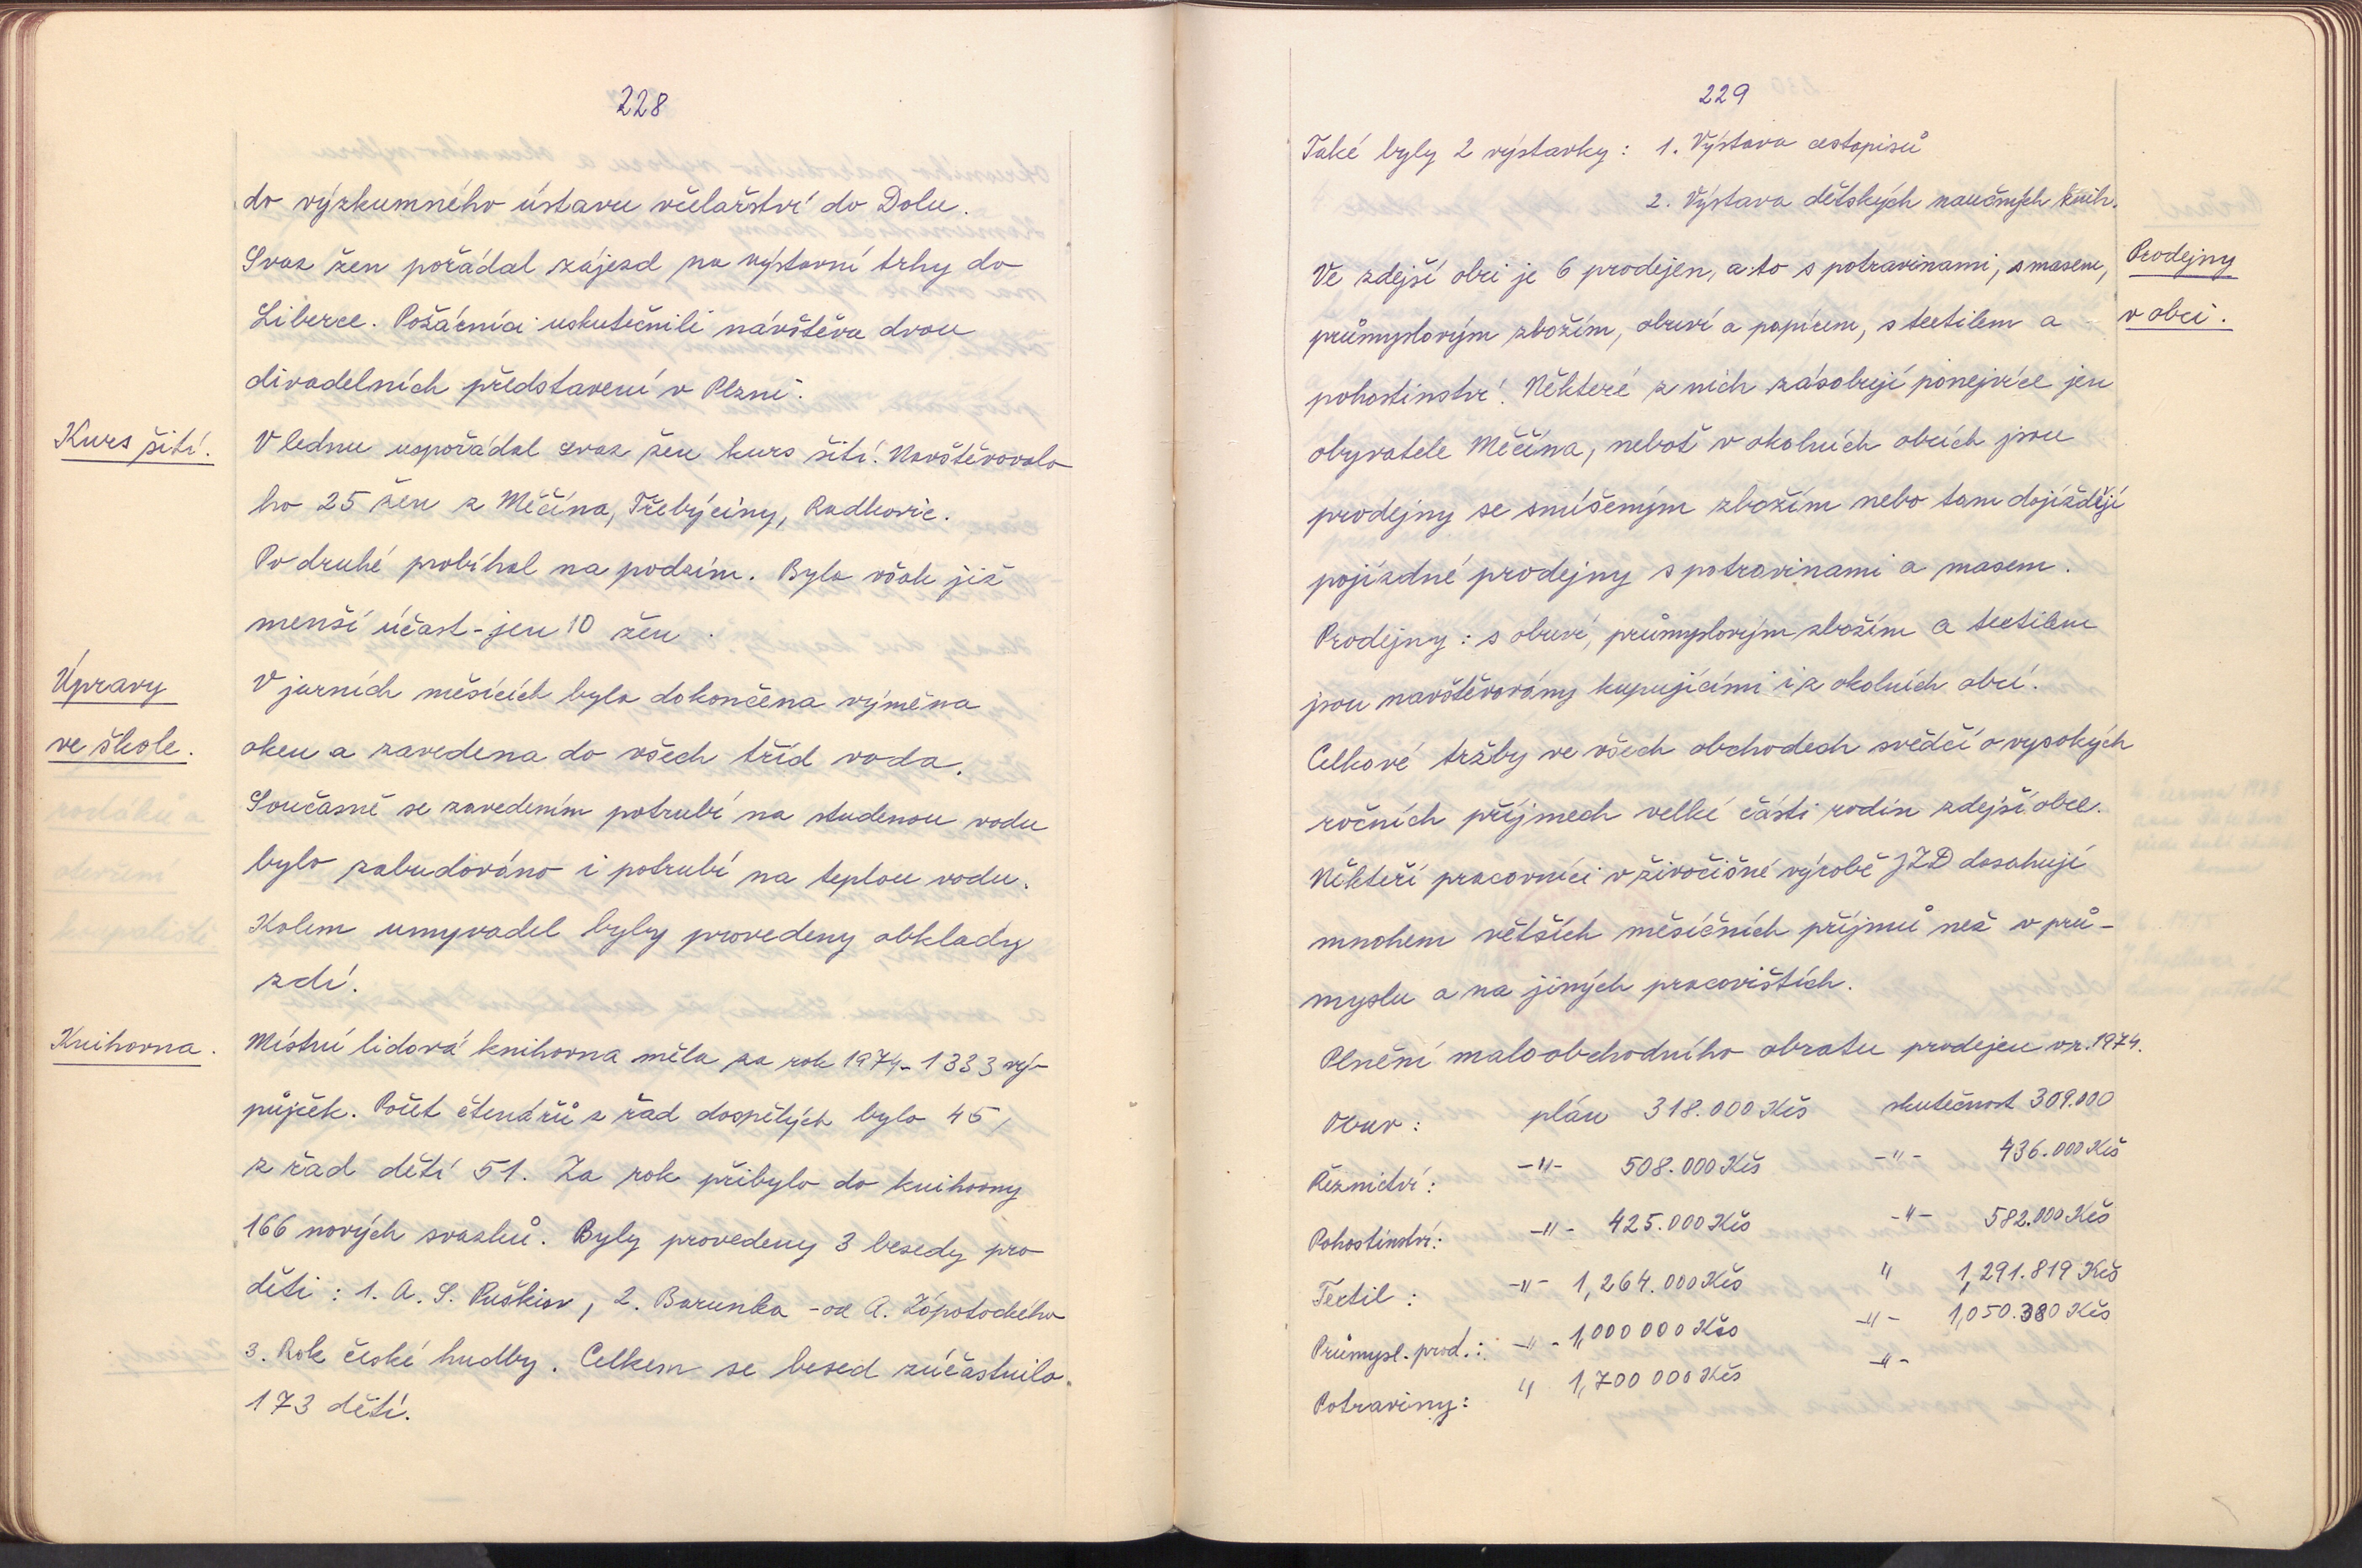 228
do výzkumného ústavu včelařství do Dolu.
Svaz žen pořádal zájezd na výstavní trhy do
Liberce. Požárníci uskutečnili návštěvu dvou
divadelních představení v Plzni.
Kurs šití.
V lednu uspořádal svaz žen kurs šití. Navštěvovalo
ho 25 žen z Měčína, Třebýciny, Radkovic.
Po druhé probíhal na podzim. Byla však již
menší účast - jen 10 žen.
Úpravy
ve škole.
V jarních měsících byla dokončena výměna
oken a zavedena do všech tříd voda.
Současně se zavedením potrubí na studenou vodu
bylo zabudováno i potrubí na teplou vodu.
Kolem umyvadel byly provedeny obklady
zdí.
Knihovna.
Místní lidová knihovna měla za rok 1974 - 1333 vý-
půjček. Počet čtenářů z řad dospělých bylo 45,
z řad dětí 51. Za rok přibylo do knihovny
166 nových svazků. Byly provedeny 3 besedy pro
děti: 1. A. S. Puškin, 2. Barunka - od A. Zápotockého
3. Rok české hudby. Celkem se besed zúčastnilo
173 dětí.
229
Také byly 2 výstavky: 1. Výstava cestopisů
2. Výstava dětských naučných knih.
Prodejny
v obci.
Ve zdejší obci je 6 prodejen, a to s potravinami, s masem,
průmyslovým zbožím, obuví a papírem, s textilem a
pohostinství. Některé z nich zásobují ponejvíce jen
obyvatele Měčína, neboť v okolních obcích jsou
prodejny se smíšeným zbožím nebo tam dojíždějí
pojízdné prodejny s potravinami a masem.
Prodejny: s obuví, průmyslovým zbožím a textilem
jsou navštěvovány kupujícími i z okolních obcí.
Celkové tržby ve všech obchodech svědčí o vysokých
ročních příjmech velké části rodin zdejší obce.
Někteří pracovníci v živočišné výrobě JZD dosahují
mnohem větších měsíčních příjmů než v prů-
myslu a na jiných pracovištích.
Plnění maloobchodního obratu prodejen v r. 1974.
Obuv: plán 318.000 Kčs skutečnost 309.000
Řeznictví: -"- 508.000 Kčs -"- 436.000 Kčs
Pohostinství: -"- 425.000 Kčs -"- 582.000 Kčs
Textil: -"- 1,264.000 Kčs " 1,291.819 Kčs
Průmysl. prod.: -"- 1,000 000 Kčs -"- 1,050.380 Kčs
Potraviny: " 1,700 000 Kčs -"-